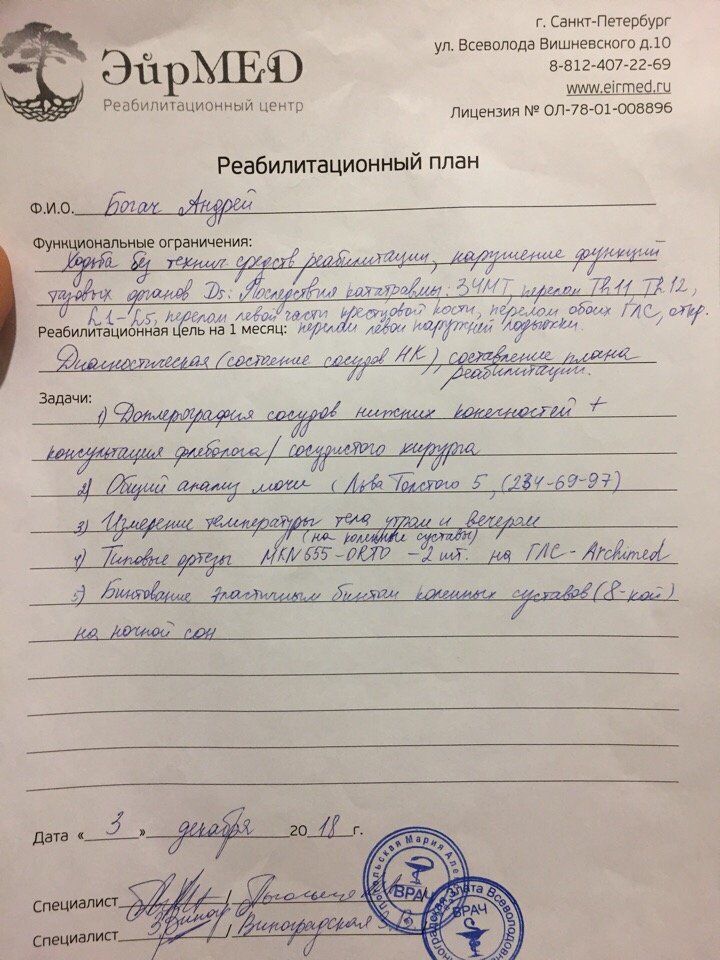 ЭйрMED
Реабилитационный центр
г. Санкт-Петербург
ул. Всеволода Вишневского д.10
8-812-407-22-69
www.eirmed.ru
Лицензия № ОЛ-78-01-008896
Реабилитационный план
Ф.И.О. Богач Андрей
Функциональные ограничения:
Ходьба без технич средств реабилитации, нарушение функций
тазовых органов Ds: Последствия кататравмы: ЗЧМТ, перелом Th11, Th12,
L1-L5, перелом левой части крестцовой кости, перелом обоих ГЛС, откр.
Реабилитационная цель на 1 месяц: перелом левой наружней лодыжки.
Диагностическая (состояние сосудов НК), составление плана
реабилитации.
Задачи:
1) Доплерография сосудов нижних конечностей +
консультация флеболога/сосудистого хирурга
2) Общий анализ мочи (Льва Толстого 5, (234-69-97)
3) Измерение температуры тела утром и вечером
(на коленные суставы)
4) Типовые ортезы MKN555-ORTO - 2 шт. на ГЛС - Archimed
5) Бинтование эластичным бинтом коленных суставов (8-кой)
на ночной сон
Дата «3» декабря 2018 г.
Специалист
ВРАЧ
Специалист Виноградская З.
Злата Всеволодовна
ВРАЧ